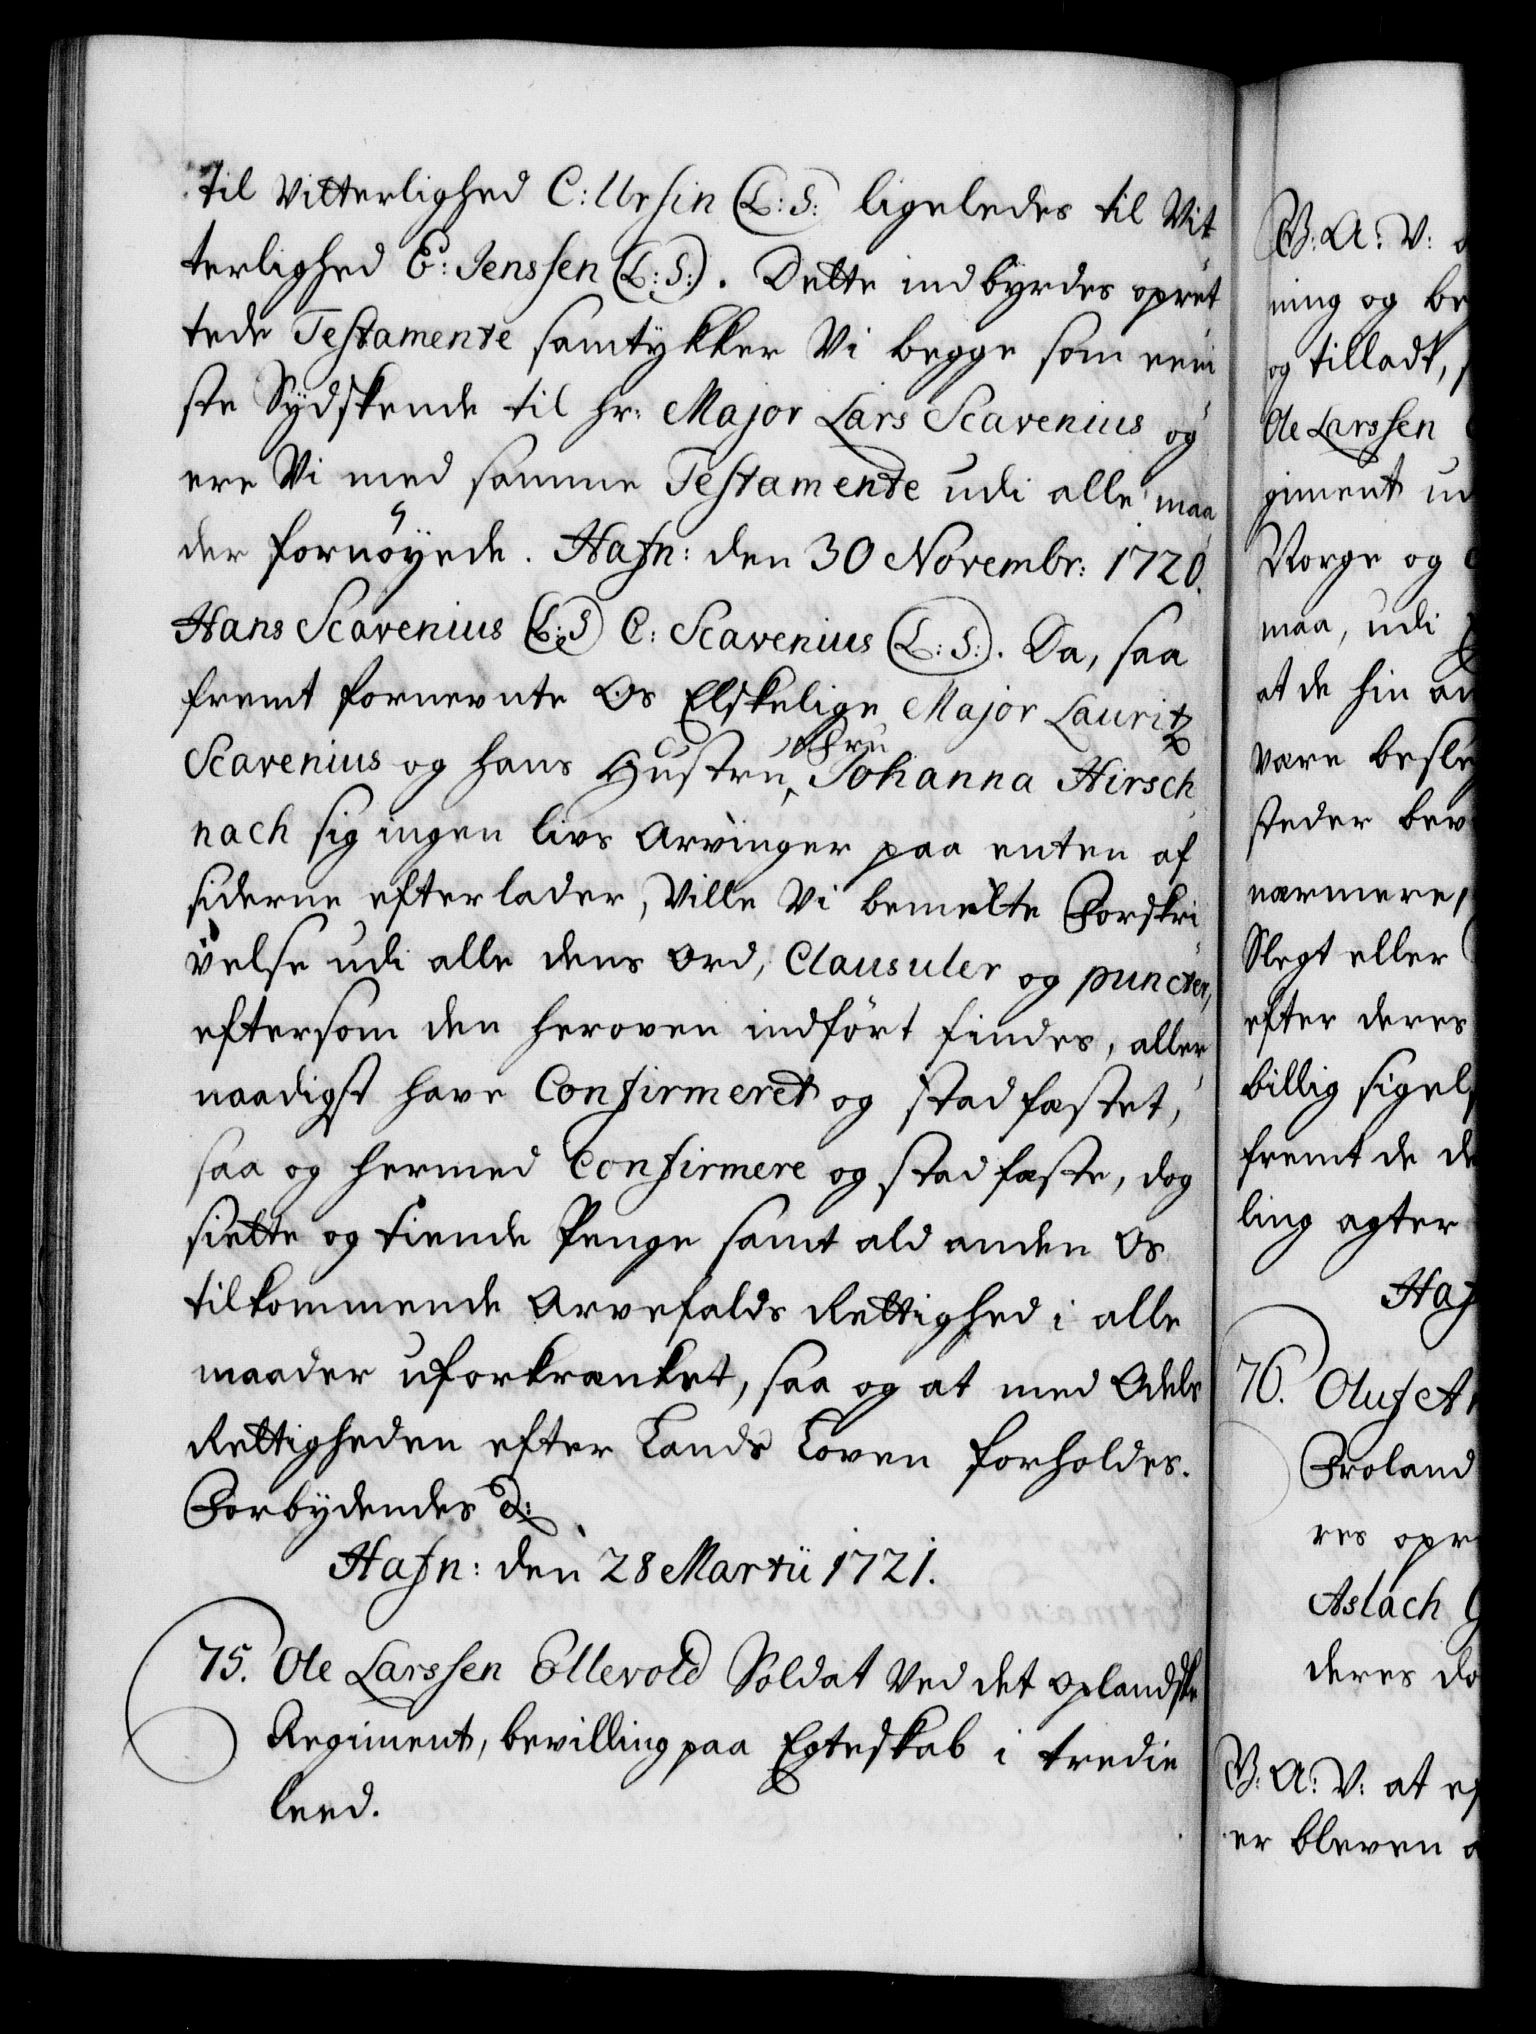 til Vitterlighed C: Ursin (L:S: ligeledes til Vit
terlighed E: Jenssen (L:S:). Dette indbyrdes opret
tede Testamente samtykker Vi begge som eeni
ste Sydskende til hr: Major Lars Scavenius og
ere Vi med samme Testamente udi alle maa
der fornöyede. Hafn: den 30 Novembr: 1720.
Hans Scavenius (L:S) C: Scavenius (L:S:). Da, saa
fremt fornevnte Os Elskelige Major Lauritz
Scavenius og hans Hustru, Fru Johanna Hirsch
nach sig ingen livs Arvinger paa enten af
siderne efterlader, Ville Vi bemelte Forskri
velse udi alle dens Ord, Clausuler og puncter,
eftersom den heroven indfört findes, aller
naadigst have Confirmeret og stadfæstet,
saa og hermed Confirmere og stadfæste, dog
siette og tiende Penge samt ald anden Os
tilkommende Arvefalds Rettighed i alle
maader uforkrænket, saa og at med Odels
Rettigheden efter Lands Loven forholdes.
Forbydendes &:
Hafn: den 28 Martii 1721.
75. Ole Larssen Ellevold Soldat Ved det oplandske
Regiment, bevilling paa Egteskab i tredie
leed.
V: A: V:
ning og be
og tilladt,
Ole Larssen
giment ud
Norge og
maa, udi
at de hin an
være besleg
steder bev
nærmere,
Slegt eller
efter deres
billig sigels
fremt de de
ling agter
Haf
76. Oluf A
Froland
res opr
Aslach G
deres do
V: A: V: at ef
er bleven a